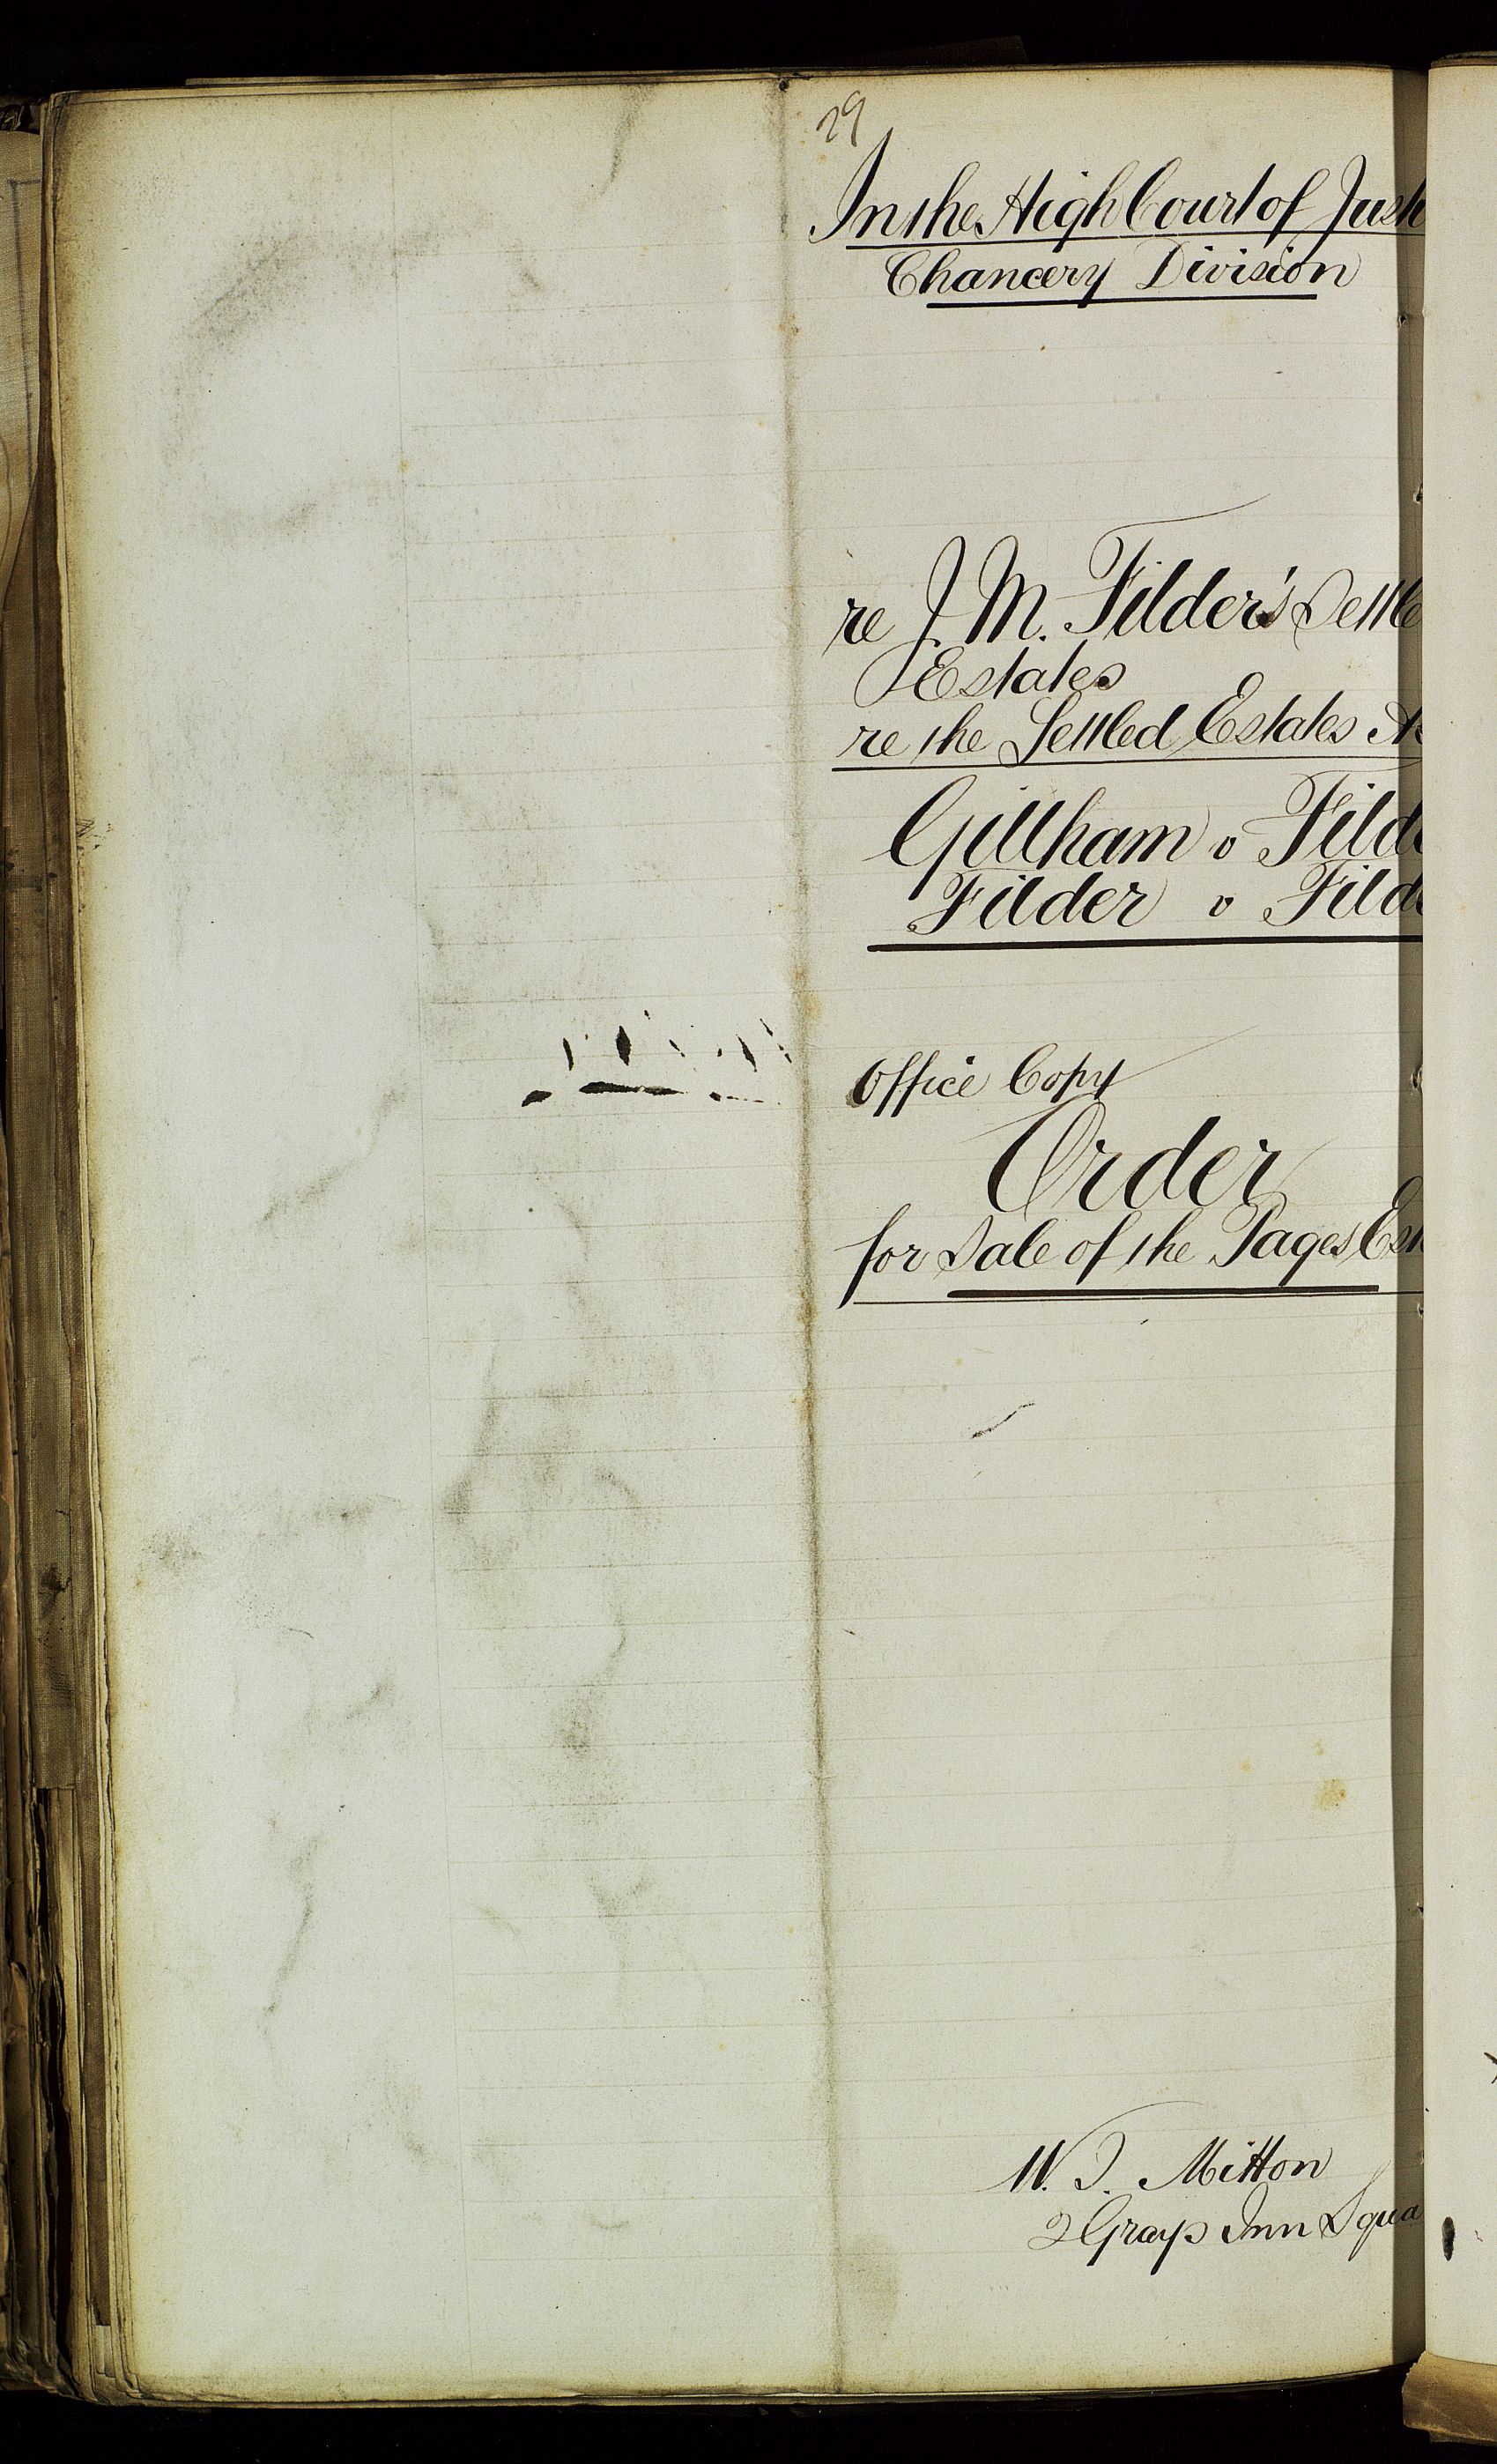 29
In the High Court of Just
Chancery Division
re J. M. Filder's Settle
Estates
re the Settled Estates A
Gillham v Filde
Filder v Filde
Office Copy
Order
for Sale of the Pages Est
W. T. Mitton
2 Grays Inn Squa